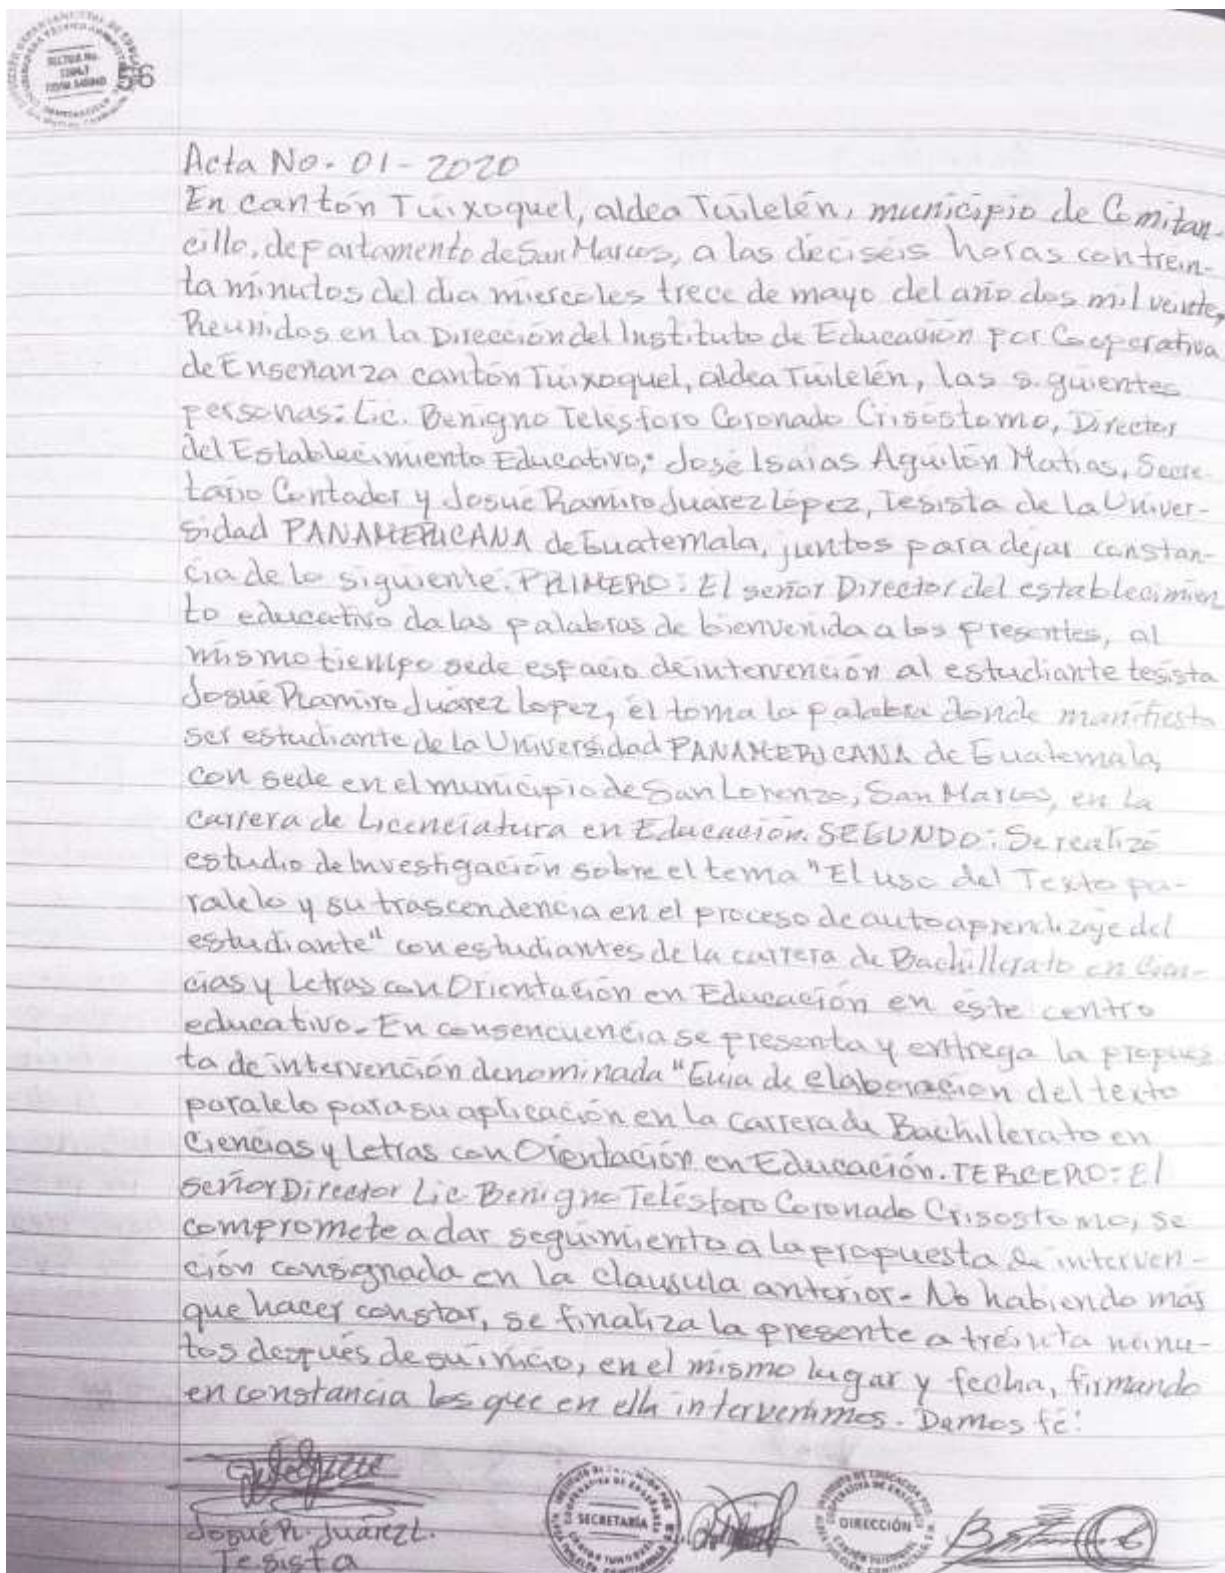 56
Acta No. 01-2020
En cantón Tuixoquel, aldea Tuilelén, municipio de Comitan-
cillo, departamento de San Marcos, a las deciséis horas con trein-
ta minutos del dia miercoles trece de mayo del año dos mil veinte,
Reunidos en la Dirección del Instituto de Educación por Cooperativa
de Enseñanza cantón Tuixoquel, aldea Tuilelén, las siguientes
personas: Lic. Benigno Telésforo Coronado Crisóstomo, Director
del Establecimiento Educativo; José Isaías Aguilón Matías, Secre-
tario Contador y Josué Ramiro Juarez López, Tesista de la Univer-
sidad PANAMERICANA de Guatemala, juntos para dejar constan-
cia de lo siguiente. PRIMERO: El señor Director del establecimien
to educativo da las palabras de bienvenida a los presentes, al
mismo tiempo sede espacio de intervención al estudiante tesista
Josué Ramiro Juárez López, él toma la palabra donde manifiesta
ser estudiante de la Universidad PANAMERICANA de Guatemala,
con sede en el municipio de San Lorenzo, San Marcos, en la
carrera de Licenciatura en Educación. SEGUNDO: Se realizó
estudio de Investigación sobre el tema "El uso del Texto pa-
ralelo y su trascendencia en el proceso de autoaprendizaje del
estudiante" con estudiantes de la carrera de Bachillerato en Cien-
cias y Letras con Orientación en Educación en este centro
educativo. En consencuencia se presenta y entrega la propues
ta de intervención denominada "Guia de elaboración del texto
paralelo para su aplicación en la carrera de Bachillerato en
Ciencias y Letras con Orientación en Educación. TERCERO: El
señor Director Lic. Benigno Telésforo Coronado Crisostomo, se
compromete a dar seguimiento a la propuesta de interven-
ción consignada en la clausula anterior. No habiendo más
que hacer constar, se finaliza la presente a treinta minu-
tos después de su inicio, en el mismo lugar y fecha, firmando
en constancia los que en ella intervenimos. Damos fé:
Josué R. Juárez L.
Tesista
SECRETARÍA
DIRECCIÓN